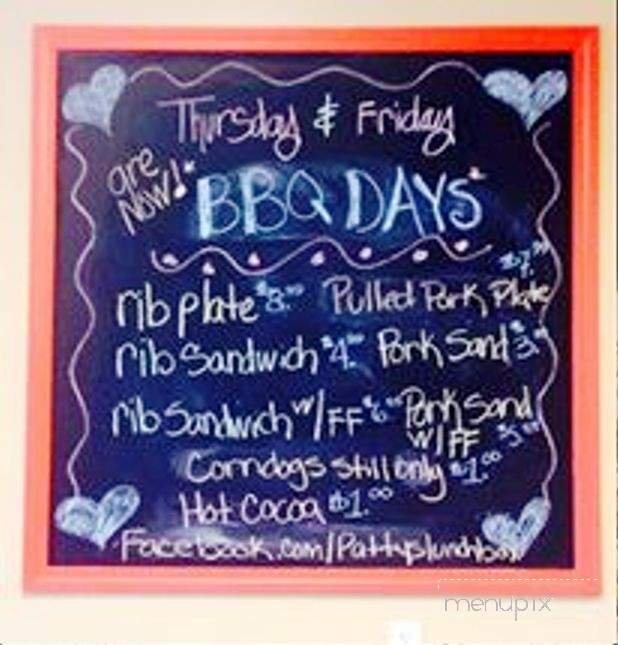 Thursday & Friday
are
NOW!
BBQ DAYS
rib plate $8.00 Pulled Pork Plate $7.00
rib Sandwich $4.00 Pork Sand $3.00
rib Sandwich w/FF $6.00 Pork Sand
w/FF $5.00
Corndogs still only $1.00
Hot Cocoa $1.00
Facebook.com/Pattyslunchbox
menupix